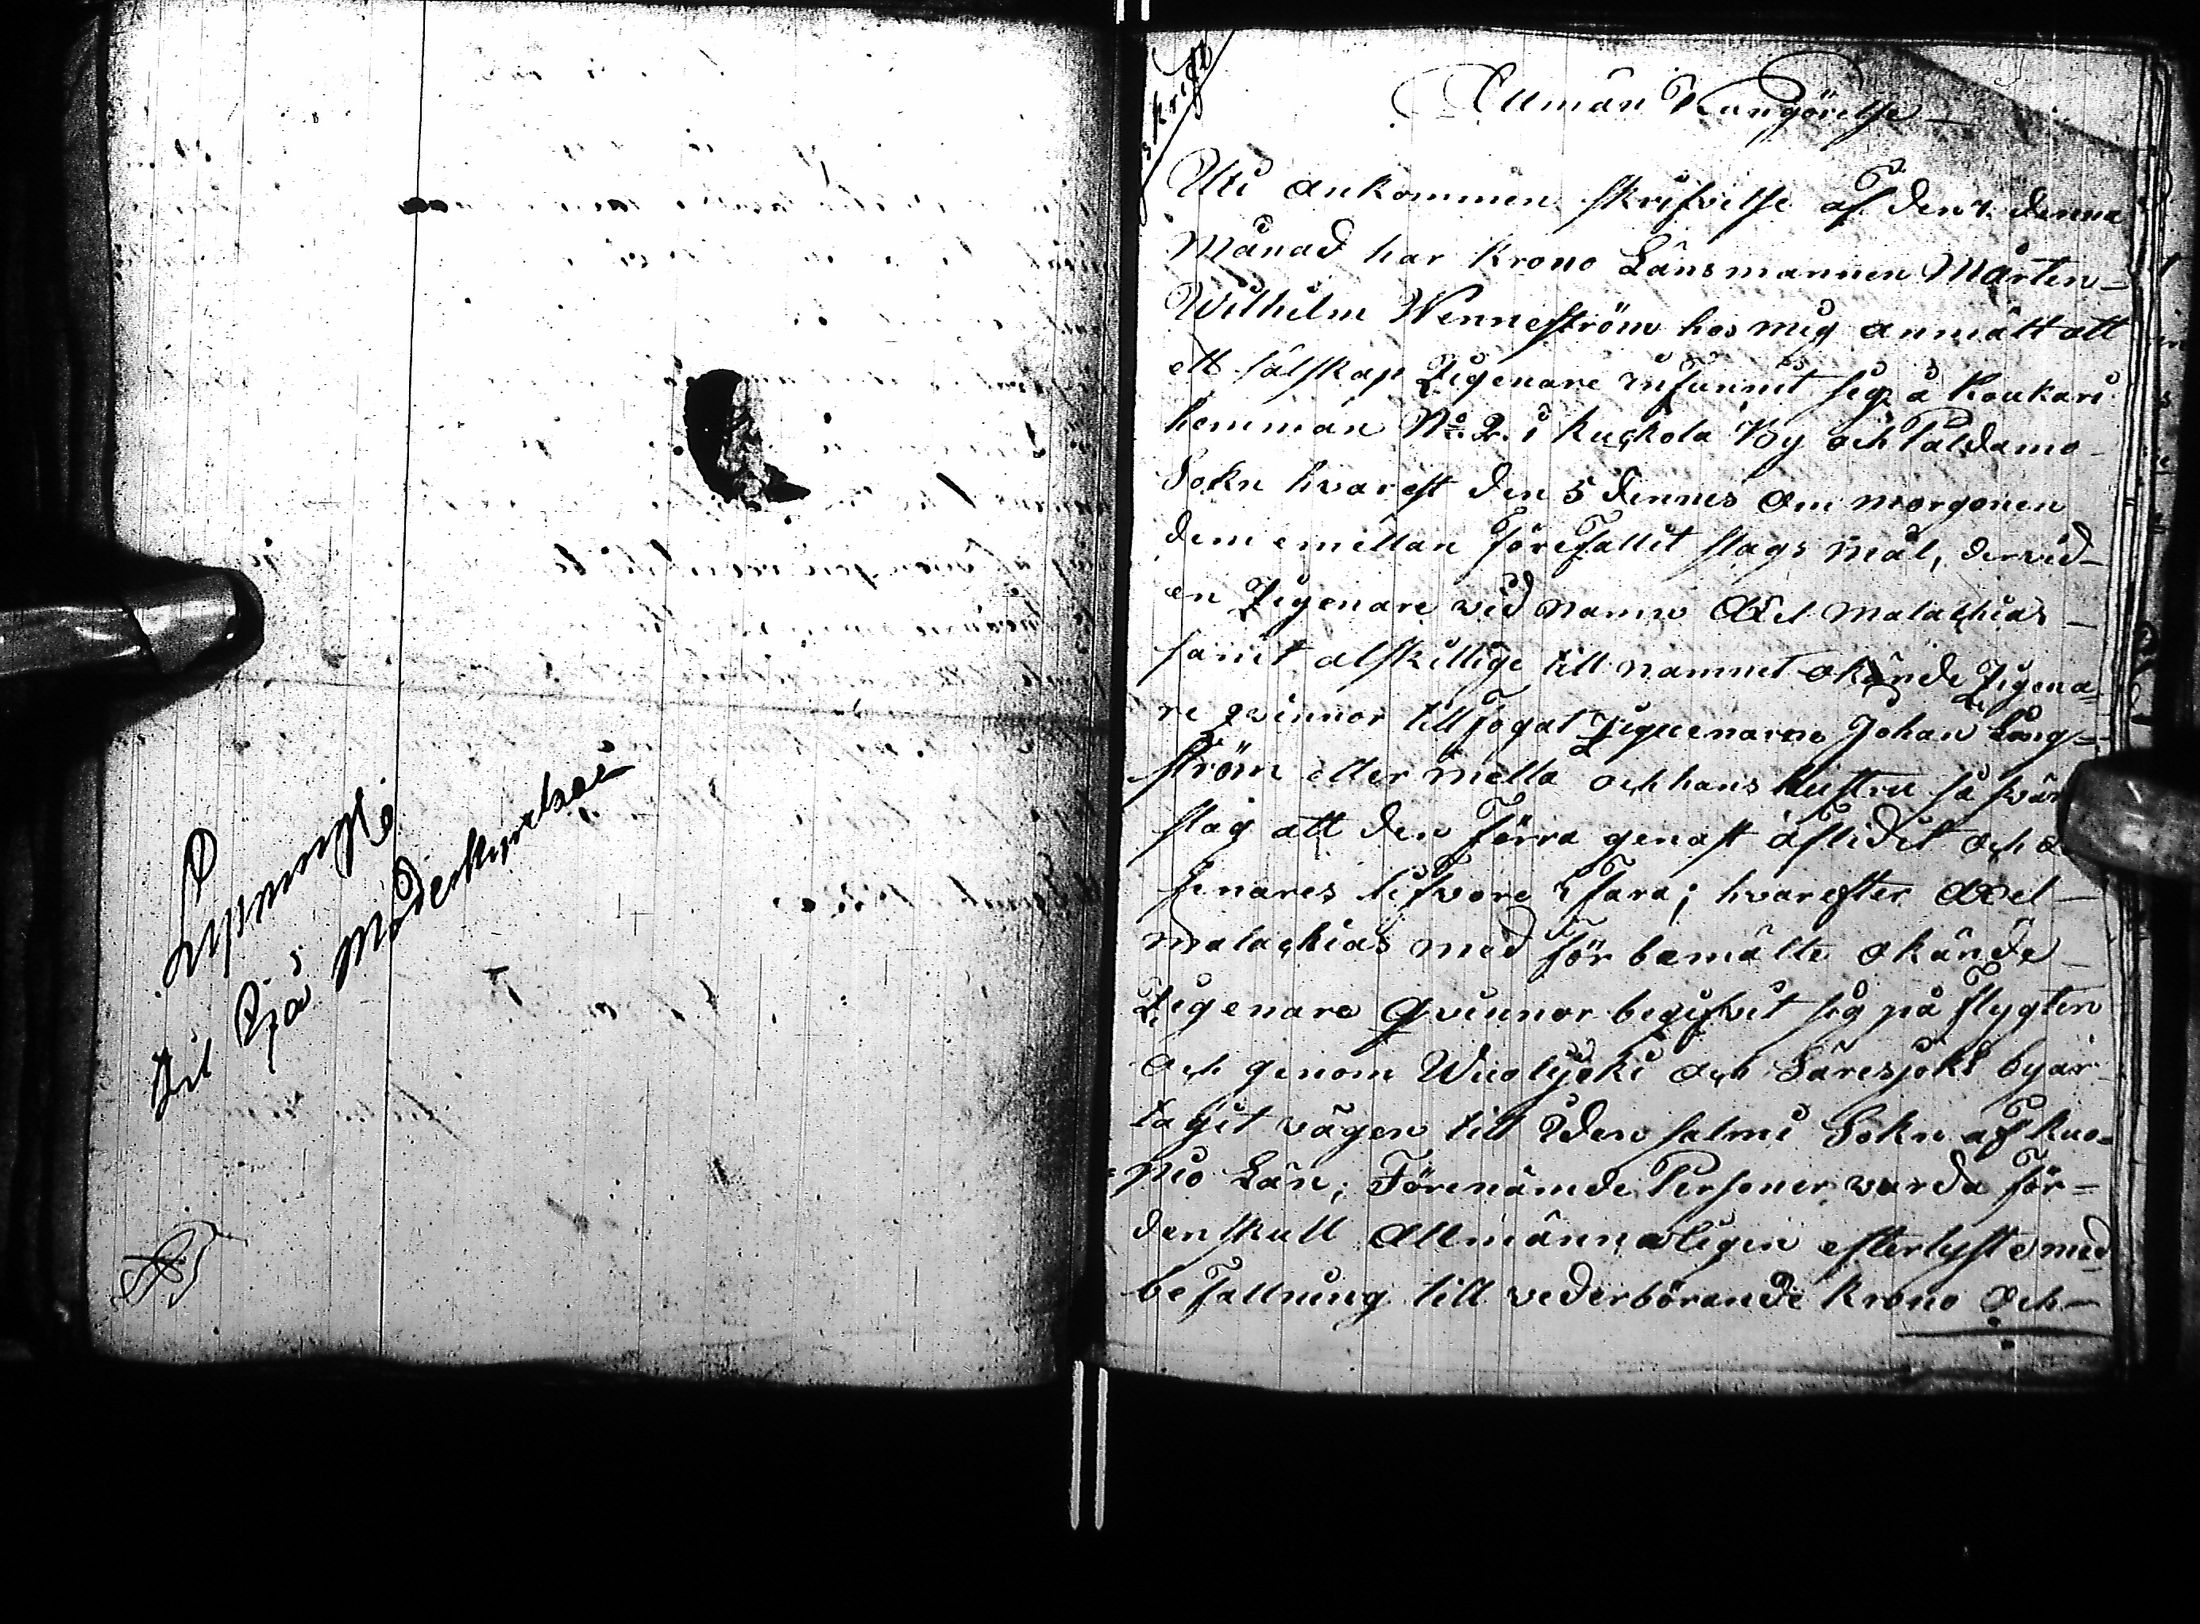 Til
Pjå Moderkyrkan
Allmän Kungörelse
Uti ankommen skrifvelse af den 7. denna
Månad har Krono Länsmannen Mårten
Wilhelm Wennerström hos mig anmält att
ett sälskap Zigenare infunnit sig å Koukari
hemman No. 2. i Kuckola By och Paldamo
Sokn hvarest den 5 dennes om morgonen
dem emellan Förefallit slags mål, dervid
en Zigenare vid namn Axel Malachias
samt alskillige till namnet okände Zigena=
re qvinnor tillfogat Zigeenaren Johan Lång=
ström eller mella och hans hustru så svår
slag att den Förra genast aflidit och
senares lif vore i Fara; hvarefter Axel
malachias med För bemälte okände
Zigenare Qvinnor begifvit sig på Flygten
och genom Wuolijoki och Säresjoki byar
tagit vägen till Iden salmi Sokn af Kuo=
pio Län; Förenämde Personer varda För=
denskull Allmänneligen efterlyste med
befallning till vederbörande Krono och